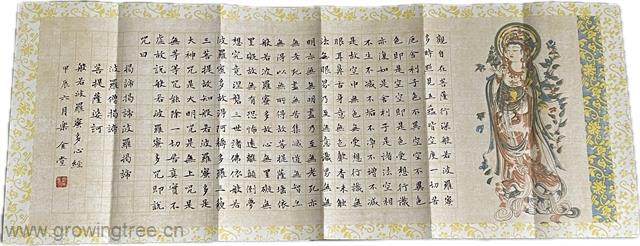 觀自在菩薩行深般若波羅蜜
多時照見五蘊皆空度一切苦
厄舍利子色不異空空不異色
色即是空空即是色受想行識
亦復如是舍利子是諸法空相
不生不滅不垢不淨不增不減
是故空中無色無受想行識無
眼耳鼻舌身意無色聲香味觸
法無眼界乃至無意識界無無
明亦無無明盡乃至無老死亦
無老死盡無苦集滅道無智亦
無得以無所得故菩提薩埵依
般若波羅蜜多故心無罣礙無
罣礙故無有恐怖遠離顛倒夢
想究竟涅槃三世諸佛依般若
波羅蜜多故得阿耨多羅三藐
三菩提故知般若波羅蜜多是
大神咒是大明咒是無上咒是
無等等咒能除一切苦真實不
虛故說般若波羅蜜多咒即說
咒曰
揭諦揭諦波羅揭諦
波羅僧揭諦
菩提薩婆訶
般若波羅蜜多心經
甲辰六月梁金堂
www.growingtree.cn